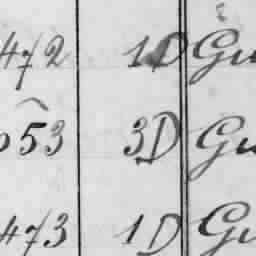 472 1D Gu
053 3D Gu
473 1D Gu